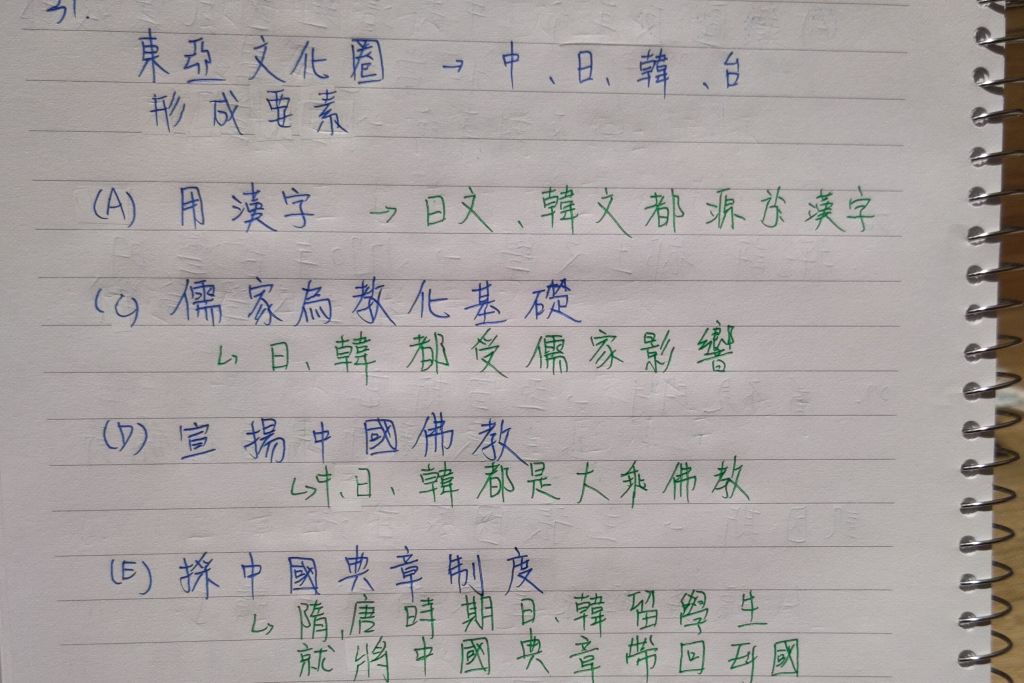 31.
東亞文化圈 → 中、日、韓、台
形成要素
(A) 用漢字 → 日文、韓文都源於漢字
(C) 儒家為教化基礎
↳ 日、韓都受儒家影響
(D) 宣揚中國佛教
↳中、日、韓都是大乘佛教
(E) 採中國典章制度
↳ 隋、唐時期日、韓留學生
就將中國典章帶回母國